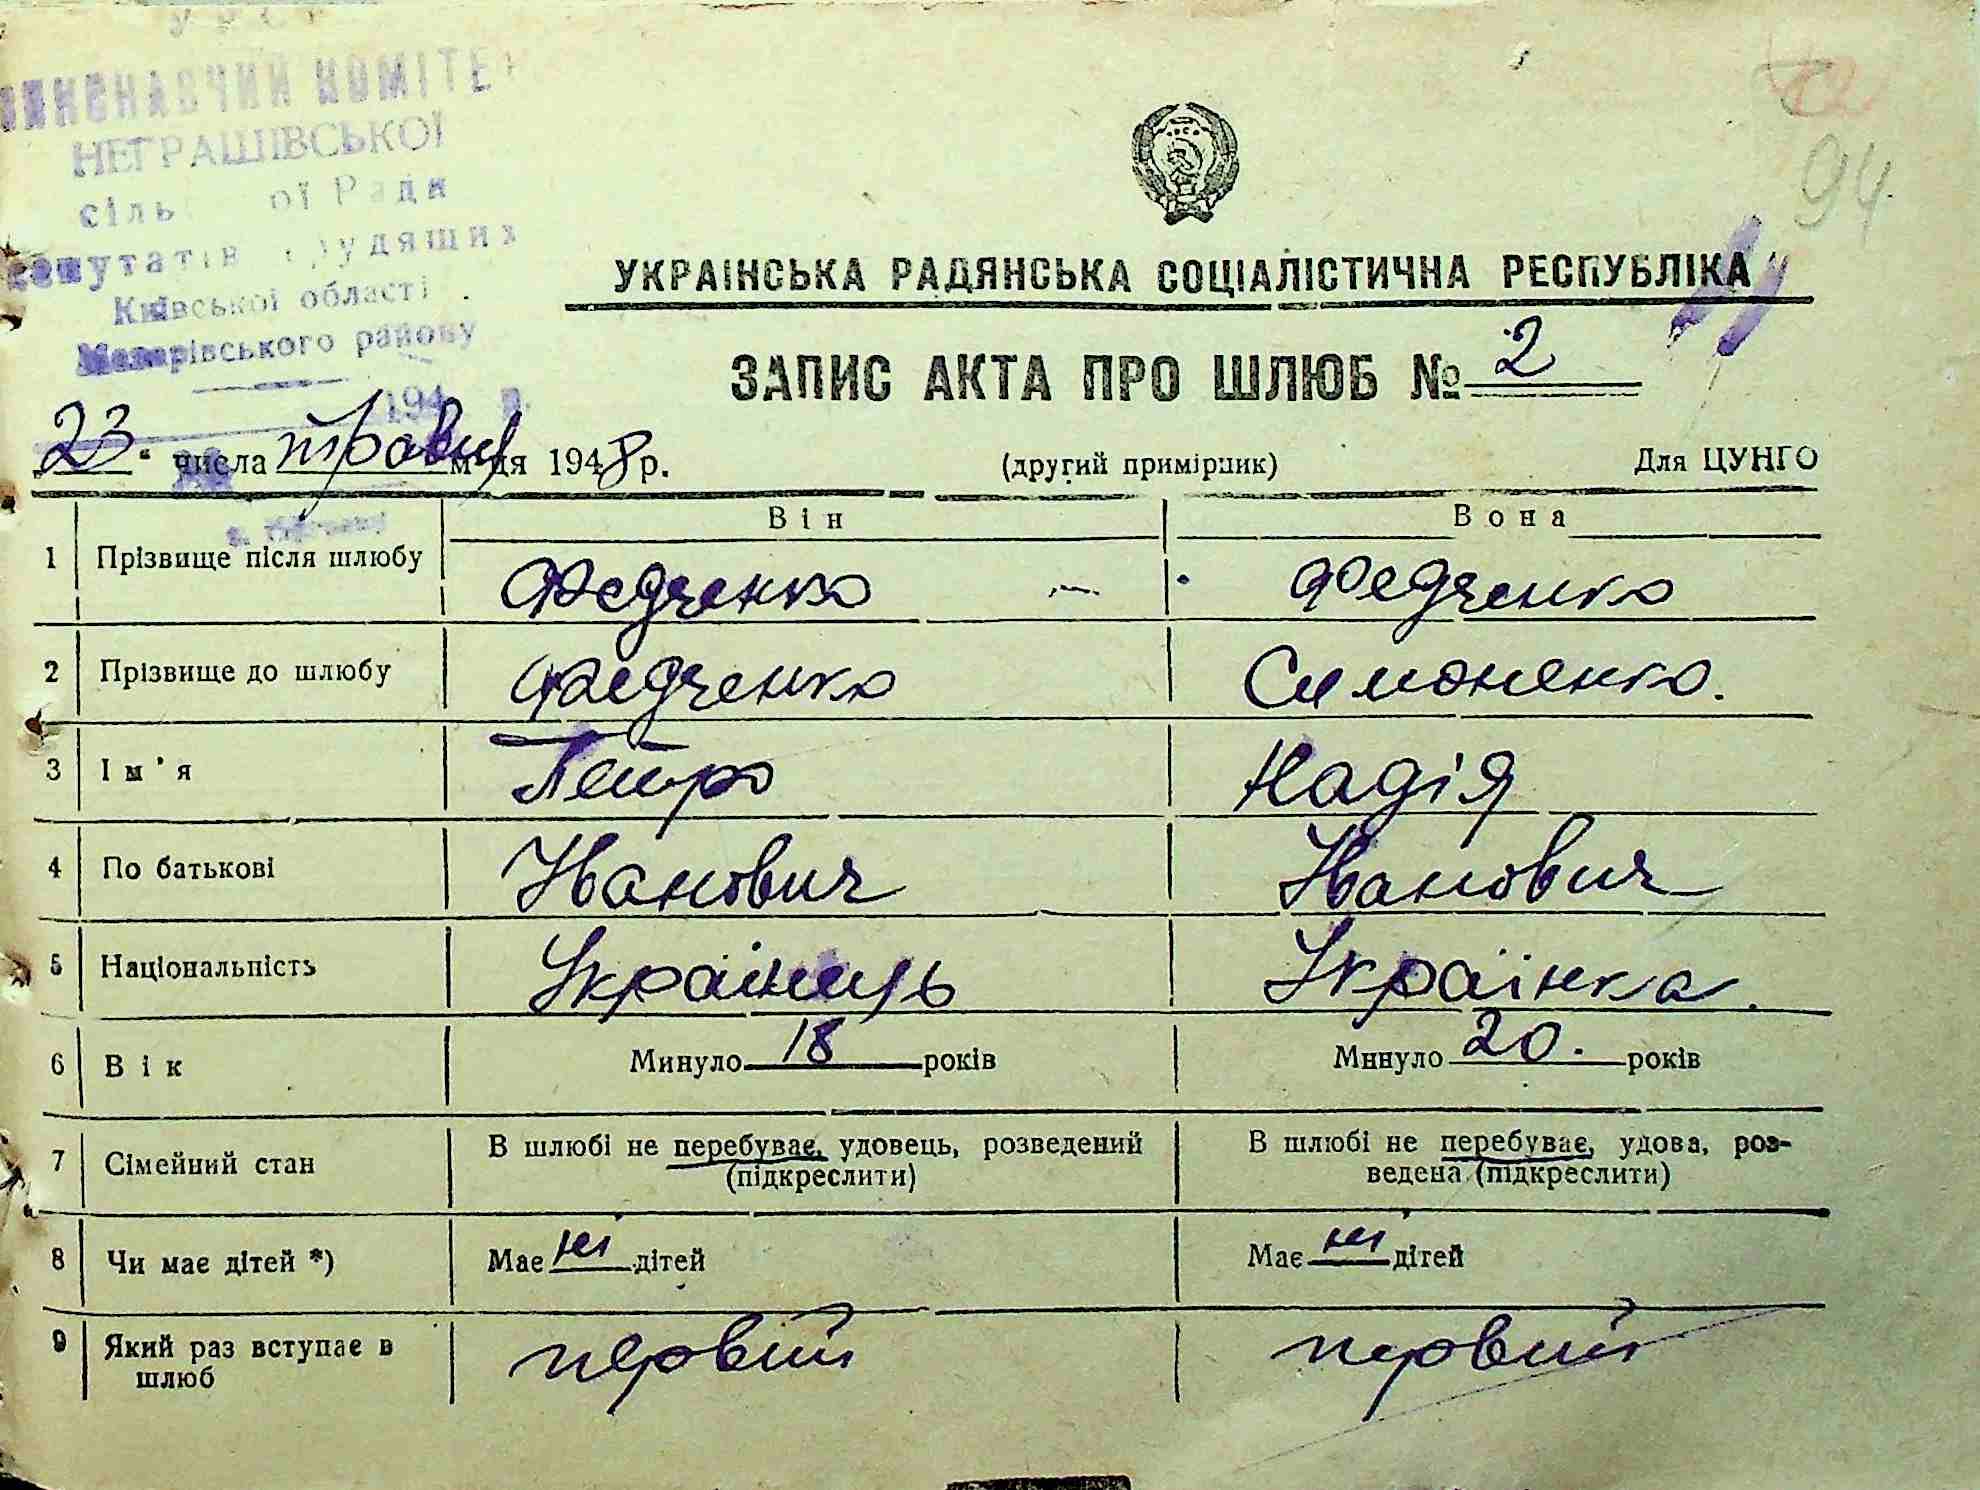 ВИКОНАВЧИЙ КОМІТЕ
НЕГРАШІВСЬКОЇ
сіль ої Ради
депутатів трудящих
Київської області
Макарівського району
194 р.
94
УКРАЇНСЬКА РАДЯНСЬКА СОЦІАЛІСТИЧНА РЕСПУБЛІКА
ЗАПИС АКТА ПРО ШЛЮБ № 2
„23“ числа травня м-ця 1948 р. (другий примірник) Для ЦУНГО
Він Вона
1 Прізвище після шлюбу Федченко Федченко
2 Прізвище до шлюбу Федченко Симоненко.
3 Ім'я Петро Надія
4 По батькові Іванович Іванович
5 Національність Українець Українка.
6 Вік Минуло 18 років Минуло 20. років
7 Сімейний стан В шлюбі не перебуває, удовець, розведений В шлюбі не перебуває, удова, роз-
(підкреслити) ведена (підкреслити)
8 Чи має дітей *) Має ні дітей Має ні дітей
9 Який раз вступає в первий первий
шлюб